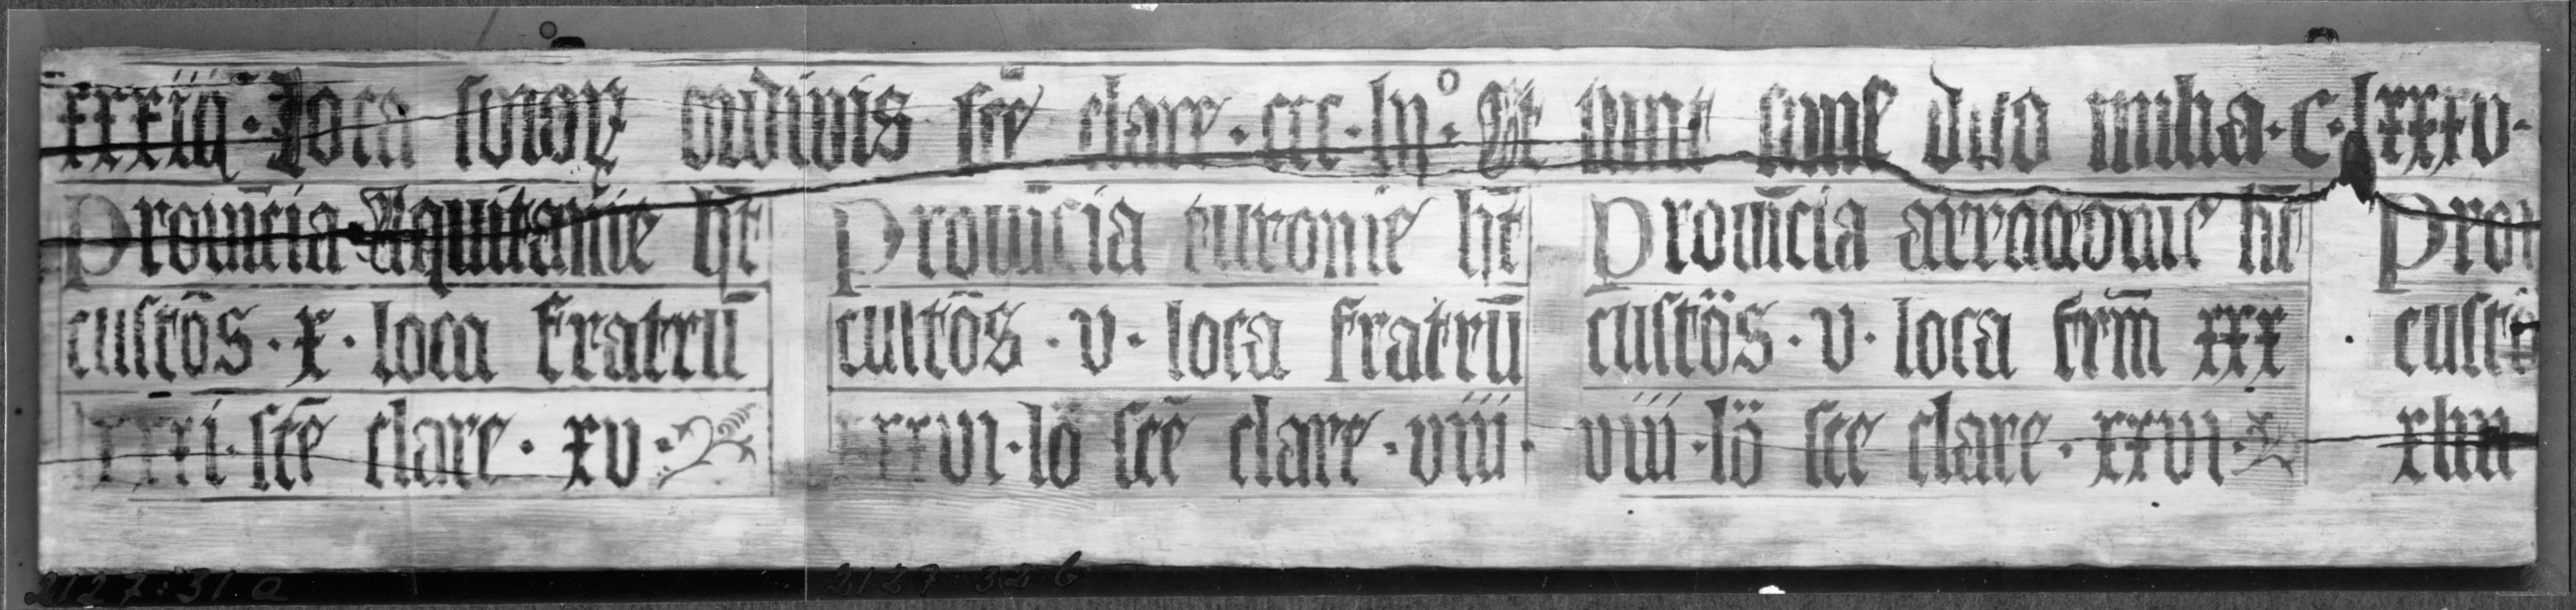 xxxiiij · Loca soroꝝ ordinis sc̄e clare · ccc · lijº · Et sunt simul duo milia · c · lxxxv ·
Prouīcia Aquitanie hīt
custōs · x · loca fratrū
lxxxi · sc̄e clare · xv ·
Prouīcia turonie hīt
custōs · v · loca fratrū
xxxvi · lō sc̄e clare · viii ·
Prouīcia arragonie hīt
custōs · v · loca frm̄ xxx
viii · lō sce clare · xxvi ·
Prou
custō
xliii
2127:31 a
2127 32 b